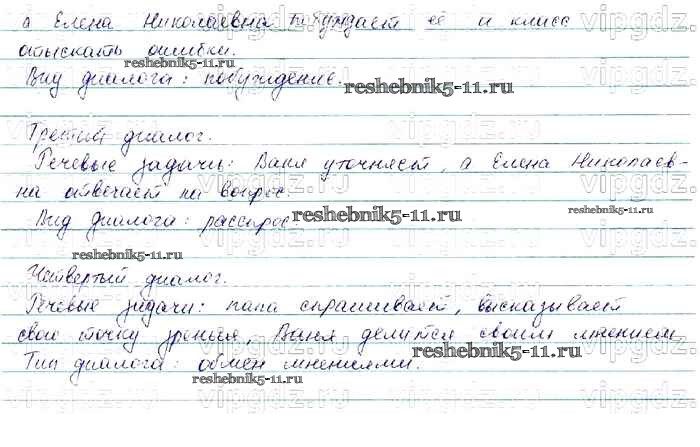 а Елена Николаевна побуждает её и класс
отыскать ошибки.
Вид диалога: побуждение.
reshebnik5-11.ru
reshebnik5-11.ru
Третий диалог.
Речевые задачи: Ваня уточняет, а Елена Николаев-
на отвечает на вопрос.
Вид диалога: расспрос.
reshebnik5-11.ru
reshebnik5-11.ru
reshebnik5-11.ru
Четвертый диалог.
Речевые задачи: папа спрашивает, высказывает
свою точку зрения, Ваня делится своим мнением.
Тип диалога: обмен мнениями.
reshebnik5-11.ru
reshebnik5-11.ru
vipgdz.ru